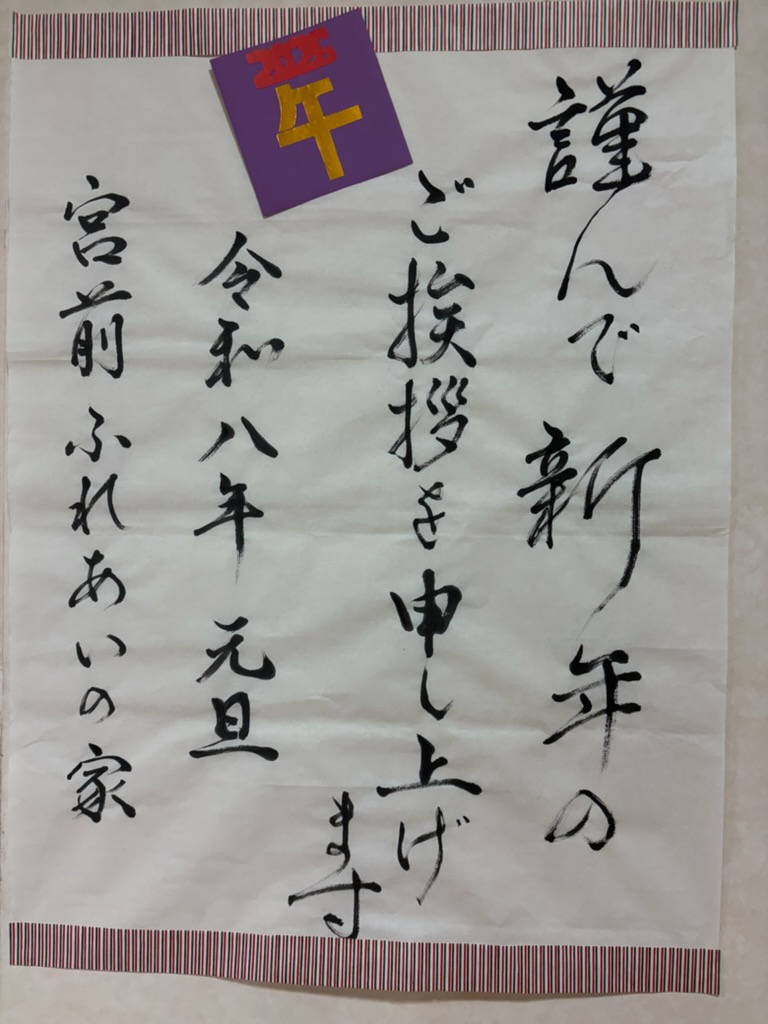 謹んで新年の
ご挨拶を申し上げ
ます
令和八年 元旦
宮前ふれあいの家
午